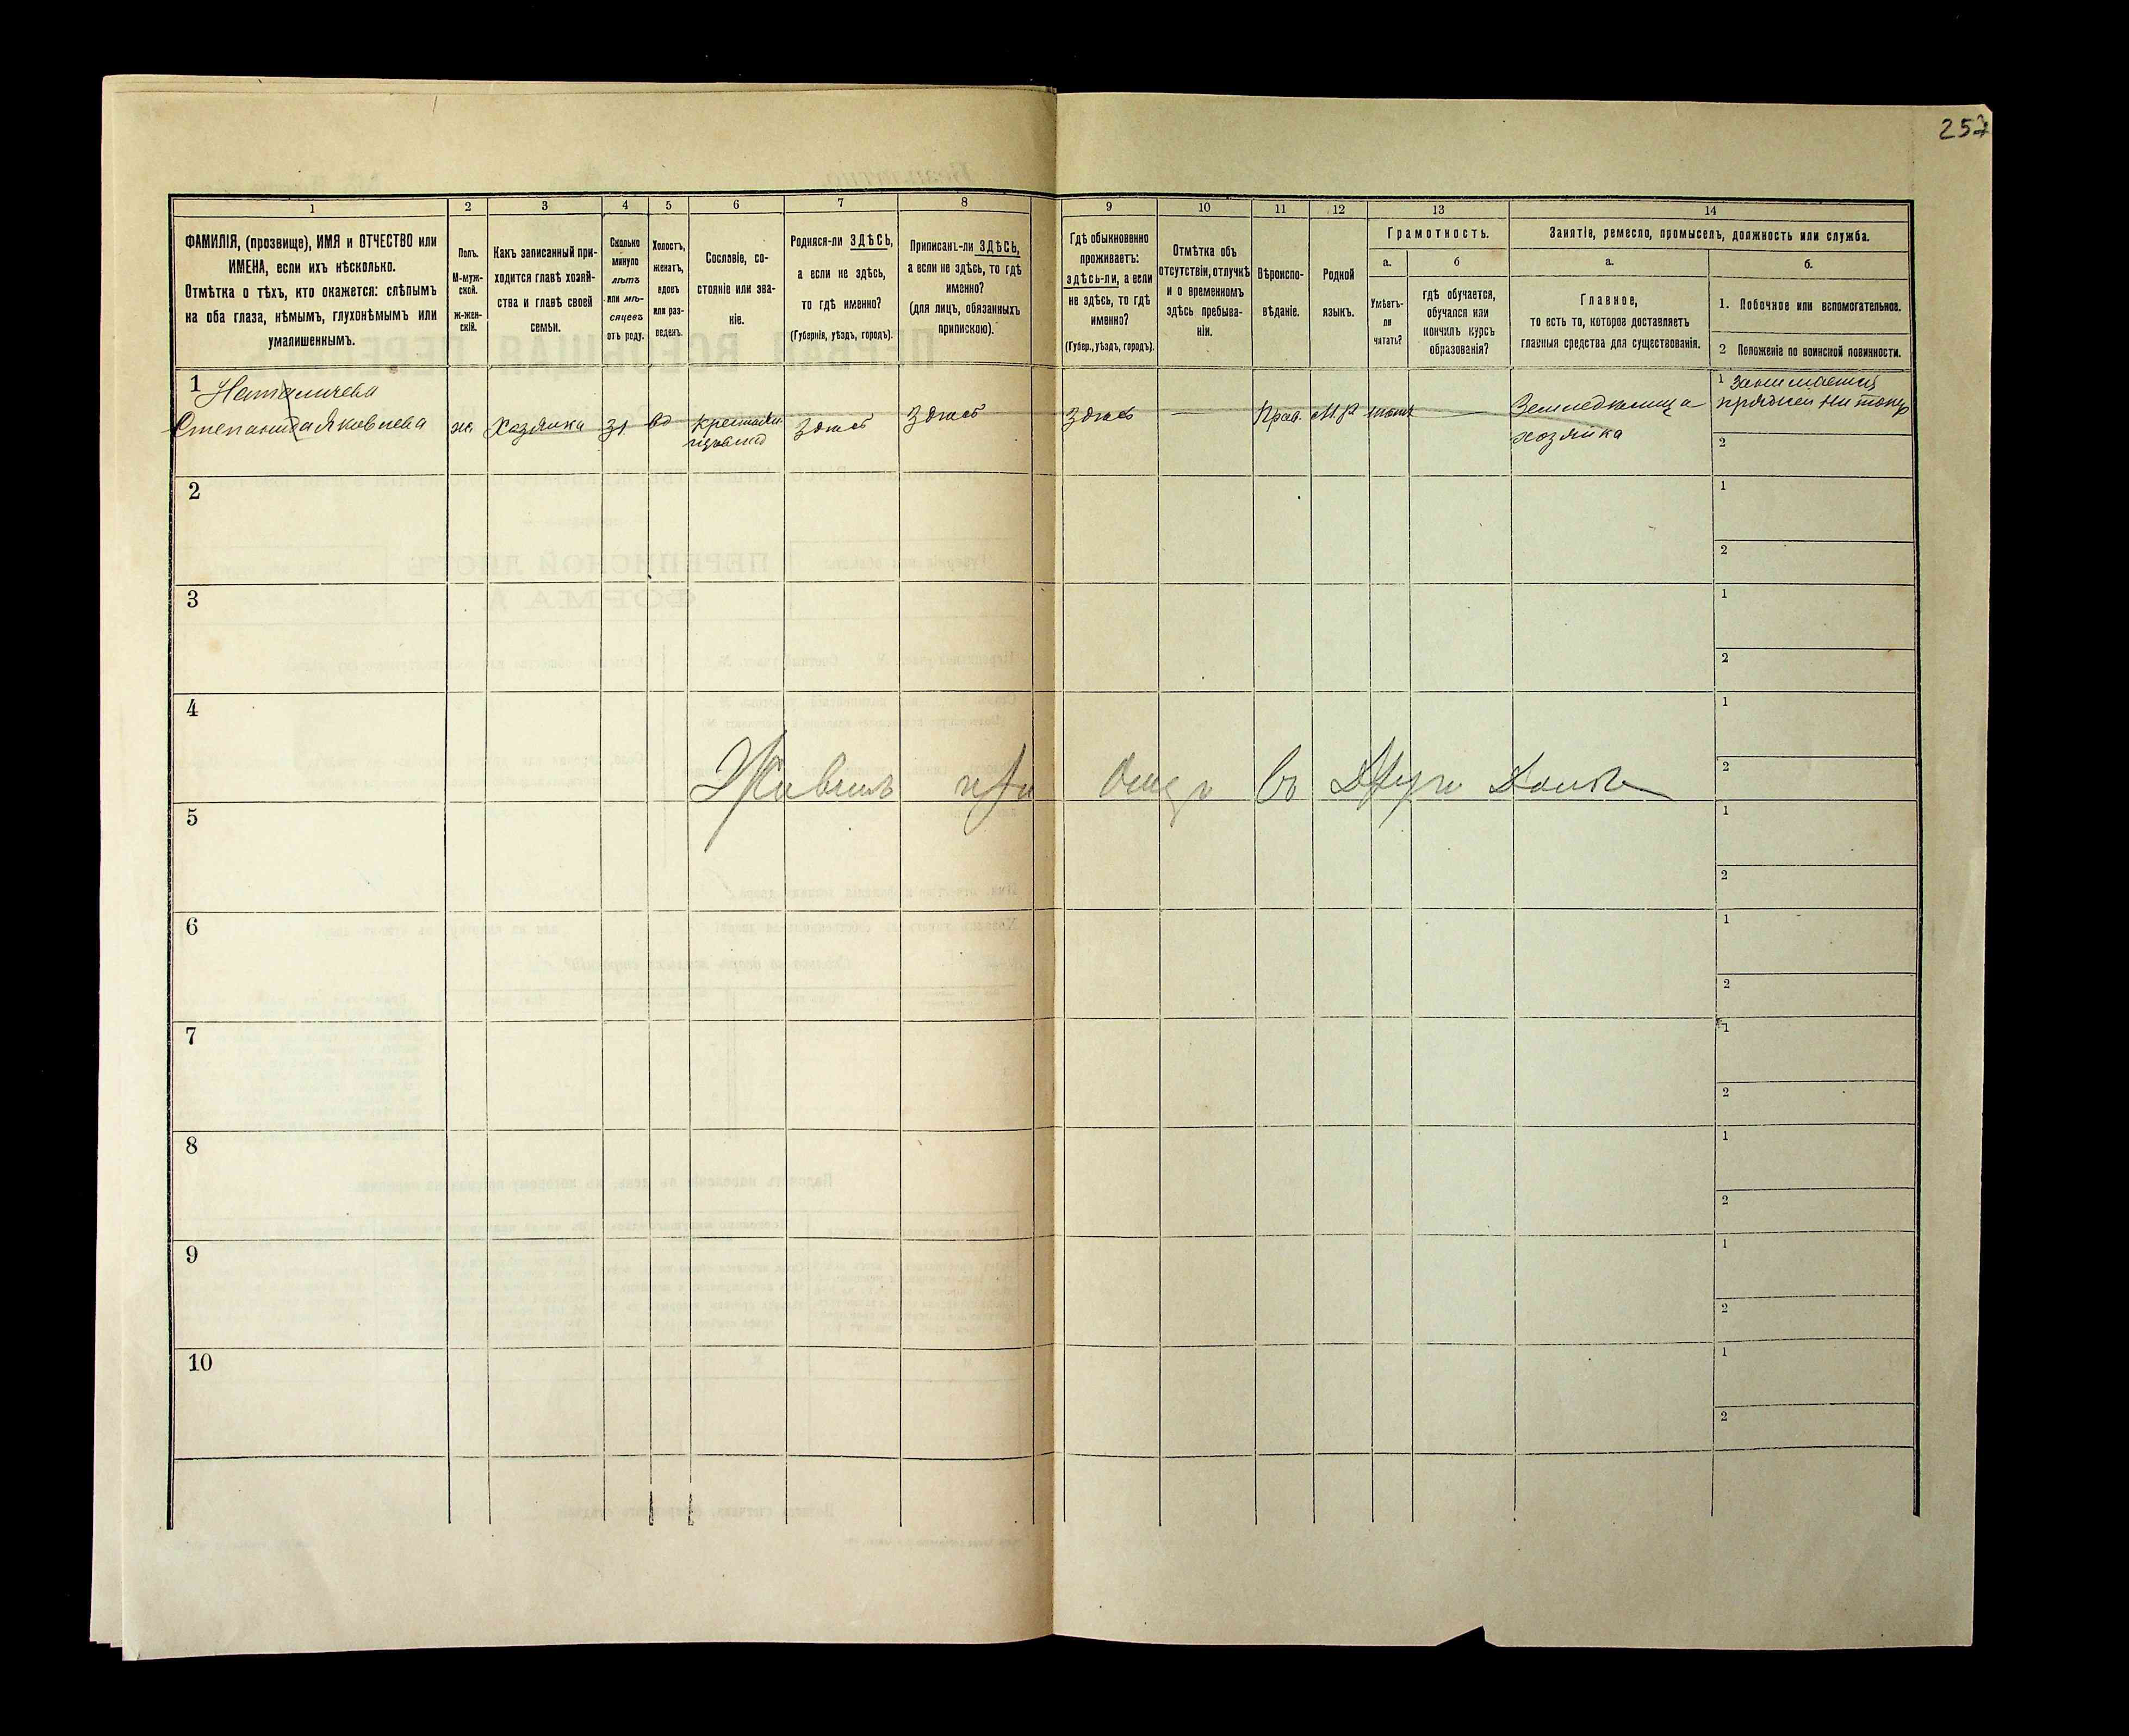 257
1
2
3
4
5
6
7
8
9
10
11
12
13
14
ФАМИЛІЯ, (прозвище), ИМЯ и ОТЧЕСТВО или
ИМЕНА, если ихъ нѣсколько.
Отмѣтка о тѣхъ, кто окажется: слѣпымъ
на оба глаза, нѣмымъ, глухонѣмымъ или
умалишеннымъ.
Полъ.
М-муж-
ской.
ж-жен-
скій.
Какъ записанный при-
ходится главѣ хозяй-
ства и главѣ своей
семьи.
Сколько
минуло
лѣтъ
или мѣ-
сяцевъ
отъ роду.
Холостъ,
женатъ,
вдовъ
или раз-
веденъ.
Сословіе, со-
стояніе или зва-
ніе.
Родился-ли ЗДѢСЬ,
а если не здѣсь,
то гдѣ именно?
(Губернія, уѣздъ, городъ).
Приписанъ-ли ЗДѢСЬ,
а если не здѣсь, то гдѣ
именно?
(для лицъ, обязанныхъ
припискою).
Гдѣ обыкновенно
проживаетъ:
здѣсь-ли, а если
не здѣсь, то гдѣ
именно?
(Губер., уѣздъ, городъ).
Отмѣтка объ
отсутствіи, отлучкѣ
и о временномъ
здѣсь пребыва-
ніи.
Вѣроиспо-
вѣданіе.
Родной
языкъ.
Грамотность.
а.
б
Умѣетъ-
ли
читать?
гдѣ обучается,
обучался или
кончилъ курсъ
образованія?
Занятіе, ремесло, промыселъ, должность или служба.
а.
б.
Главное,
то есть то, которое доставляетъ
главныя средства для существованія.
1. Побочное или вспомогательное.
2 Положеніе по воинской повинности.
1
Степанида Яковлева
ж.
Хозяйка
31
вд
Здѣсь
Здѣсь
Здѣсь
—
Прав.
—
хозяйка
1 Занимается
2
2
1
2
3
1
2
4
1
2
въ
5
1
2
6
1
2
7
1
2
8
1
2
9
1
2
10
1
2